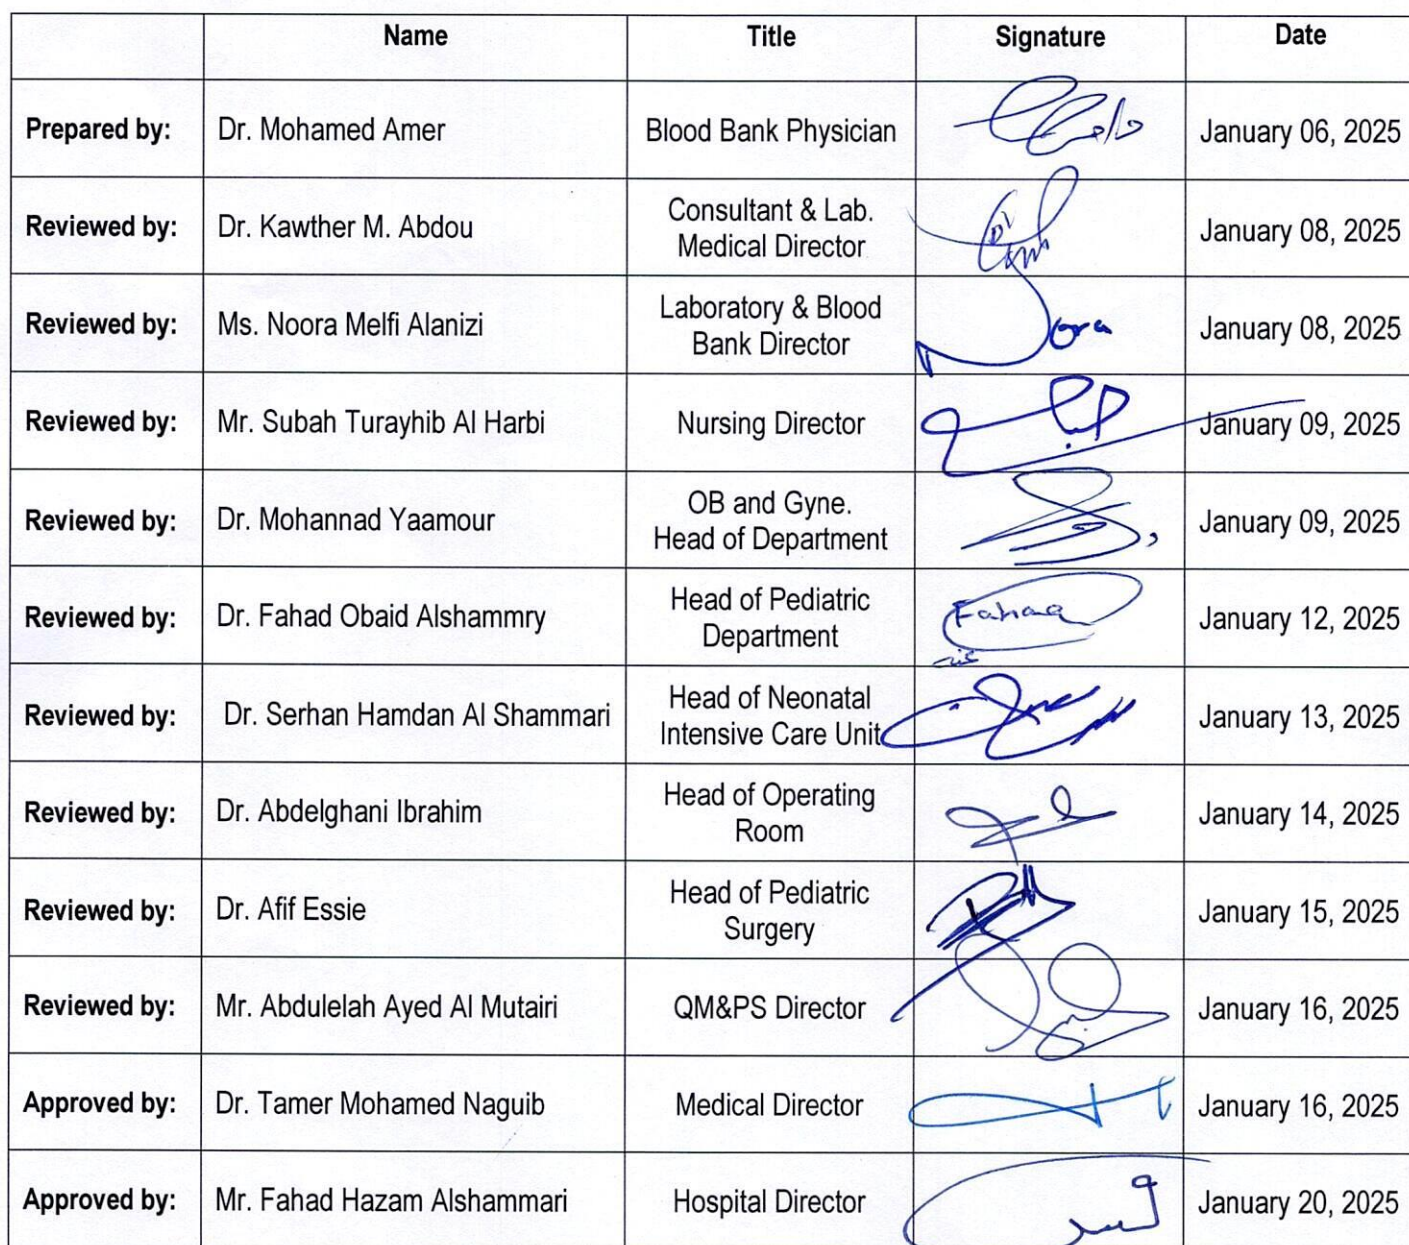 Name Title Signature Date
Prepared by: Dr. Mohamed Amer Blood Bank Physician January 06, 2025
Reviewed by: Dr. Kawther M. Abdou Consultant & Lab. Medical Director January 08, 2025
Reviewed by: Ms. Noora Melfi Alanizi Laboratory & Blood Bank Director Nora January 08, 2025
Reviewed by: Mr. Subah Turayhib Al Harbi Nursing Director January 09, 2025
Reviewed by: Dr. Mohannad Yaamour OB and Gyne. Head of Department January 09, 2025
Reviewed by: Dr. Fahad Obaid Alshammry Head of Pediatric Department Fahad January 12, 2025
Reviewed by: Dr. Serhan Hamdan Al Shammari Head of Neonatal Intensive Care Unit January 13, 2025
Reviewed by: Dr. Abdelghani Ibrahim Head of Operating Room January 14, 2025
Reviewed by: Dr. Afif Essie Head of Pediatric Surgery January 15, 2025
Reviewed by: Mr. Abdulelah Ayed Al Mutairi QM&PS Director January 16, 2025
Approved by: Dr. Tamer Mohamed Naguib Medical Director January 16, 2025
Approved by: Mr. Fahad Hazam Alshammari Hospital Director January 20, 2025